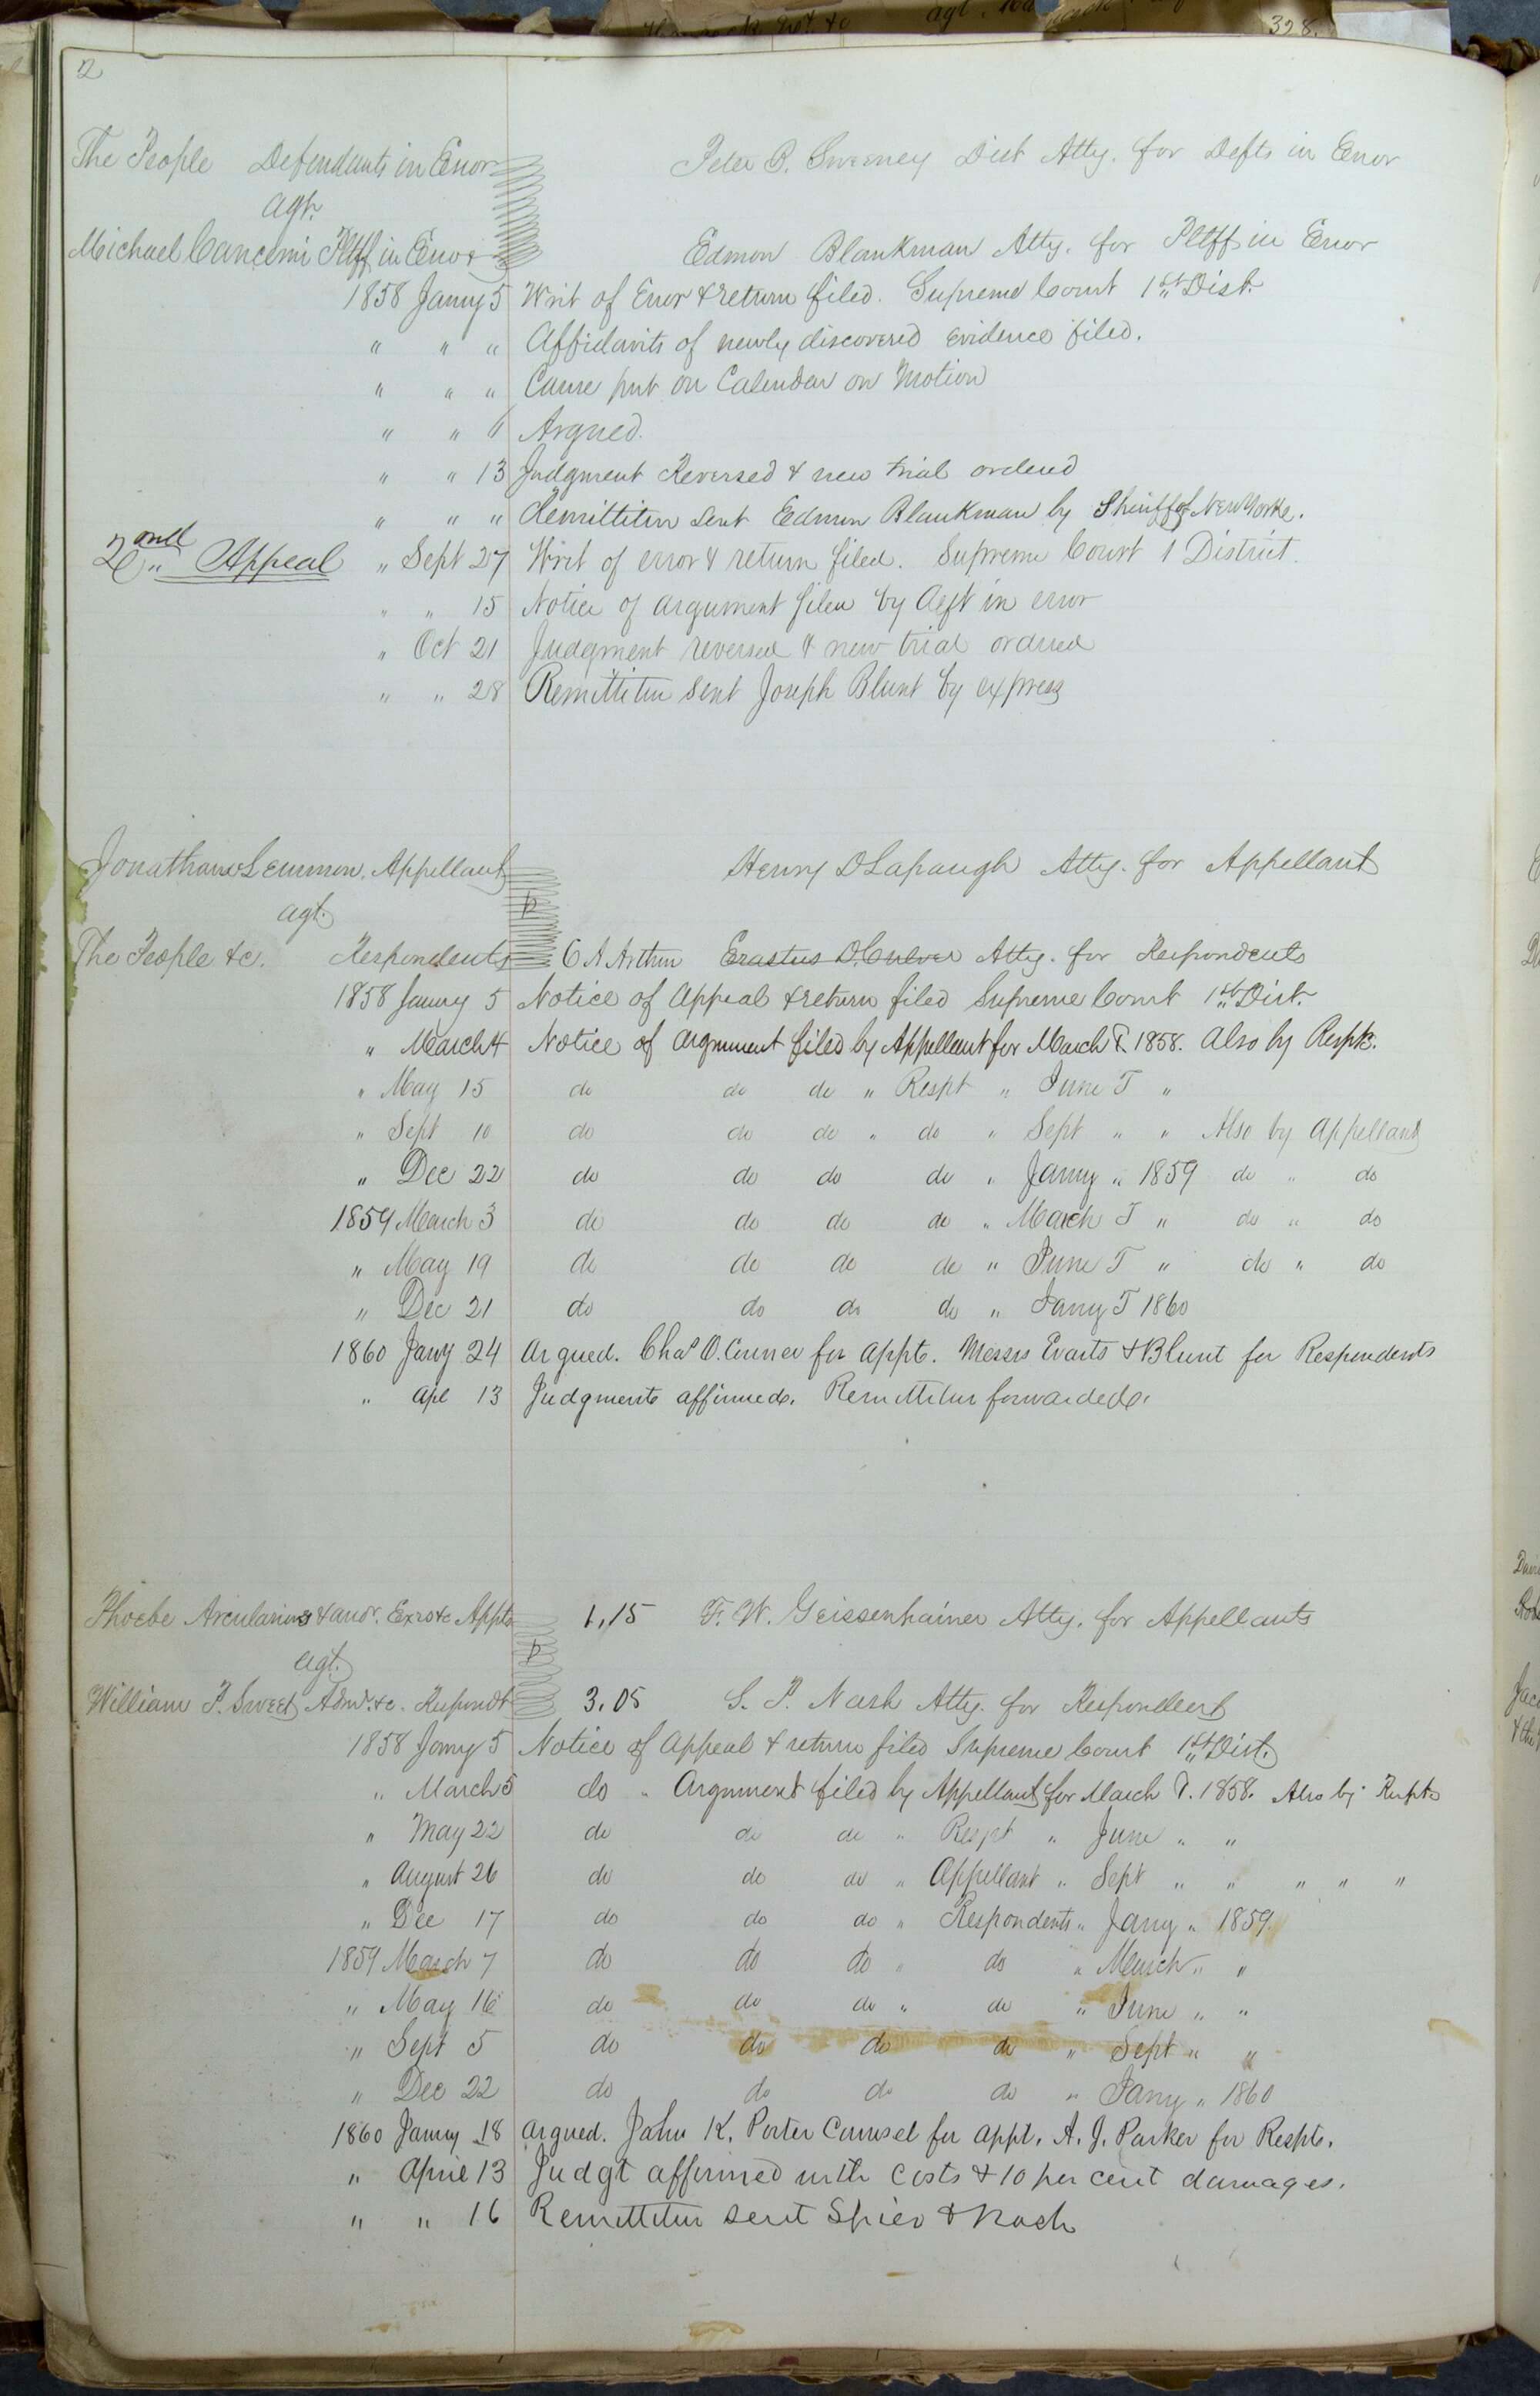 328.
2
The People Defendants in Error Peter B. Sweeney Dist Atty. for Defts in Error
agt.
Michael Cancemi Pltff in Error Edmon Blankman Atty. for Pltff in Error
1858 Jany 5 Writ of Error & return filed. Supreme Court 1st Dist.
" " " Affidavits of newly discovered evidence filed.
" " " Cause put on Calendar on Motion
" " " Argued.
" " 13 Judgment Reversed & new trial ordered
" " " Remittitur sent Edmon Blankman by Sheriff of New York.
2nd Appeal " Sept 27 Writ of error & return filed. Supreme Court 1 District.
" " 15 Notice of argument filed by deft in error
" Oct 21 Judgment reversed & new trial ordered
" " 28 Remittitur sent Joseph Blunt by express
Jonathan Lemmon, Appellant Henry D Lapaugh Atty. for Appellant
agt.
The People &c. Respondents C A Arthur Erastus D. Culver Atty. for Respondents
1858 Jany 5 Notice of Appeal & return filed Supreme Court 1st Dist.
" March 4 Notice of Argument filed by Appellant for March T. 1858. Also by Respts.
" May 15 do do do " Respt " June T "
" Sept 10 do do do " do " Sept " " Also by Appellant
" Dec 22 do do do do " Jany " 1859 do " do
1859 March 3 do do do do " March T " do " do
" May 19 do do do do " June T " do " do
" Dec 21 do do do do " Jany T 1860
1860 Jany 24 Argued. Chas O. Conner for Appt. Messrs Evarts & Blunt for Respondents
" Apl 13 Judgments affirmed. Remittitur forwarded.
Phoebe Arcularius & anor. Exrs &c Appts 1,15 F. W. Geissenhainer Atty. for Appellants
agt.
William P. Sweet Admr. &c. Respondt 3.05 S. P. Nash Atty. for Respondent
1858 Jany 5 Notice of Appeal & return filed Supreme Court 1st Dist.
" March 5 do " Argument filed by Appellant for March T. 1858. Also by Respts
" May 22 do do do " Respt " June " "
" August 26 do do do " Appellant " Sept " " " " "
" Dec 17 do do do " Respondents " Jany " 1859.
1859 March 7 do do do " do " March " "
" May 16 do do do " do " June " "
" Sept 5 do do do do " Sept " "
" Dec 22 do do do do " Jany " 1860
1860 Jany 18 Argued. John K. Porter Counsel for Appt. A. J. Parker for Respts.
" April 13 Judgt affirmed with costs & 10 per cent damages.
" " 16 Remittitur sent Spier & Nash